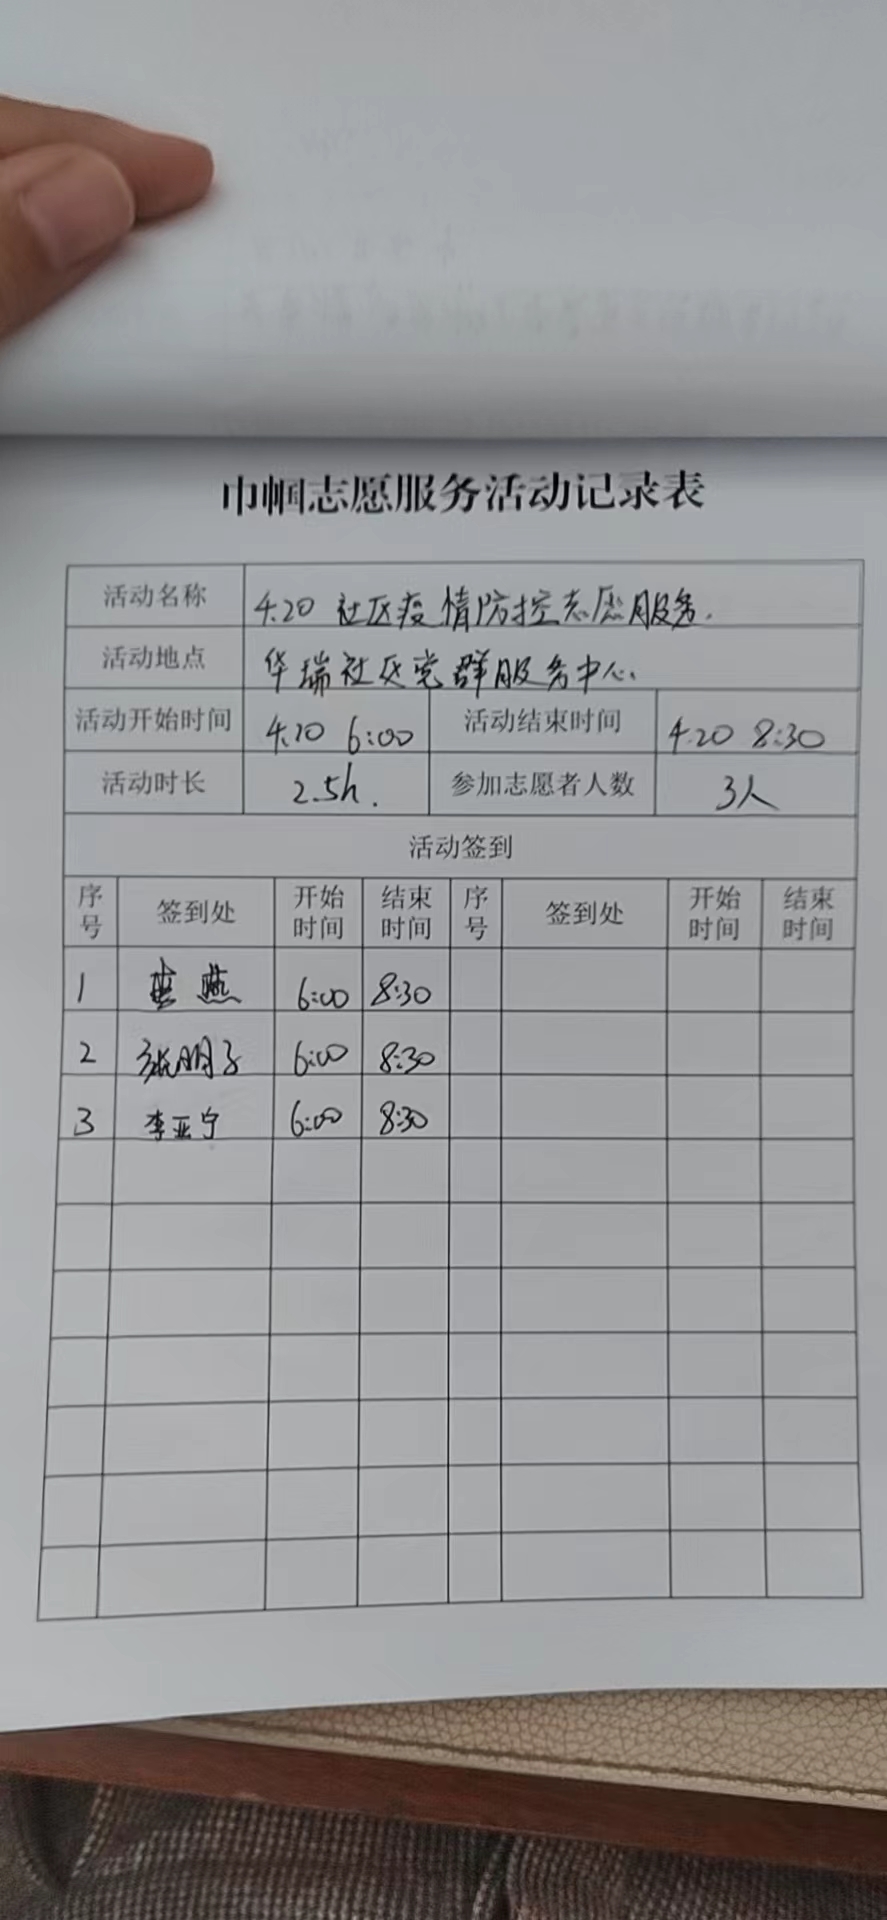 巾帼志愿服务活动记录表
活动名称 4.20 社区疫情防控志愿服务.
活动地点 华瑞社区党群服务中心.
活动开始时间 4.20 6:00 活动结束时间 4.20 8:30
活动时长 2.5h. 参加志愿者人数 3人
活动签到
序号 签到处 开始时间 结束时间 序号 签到处 开始时间 结束时间
1 燕 6:00 8:30
2 张明子 6:00 8:30
3 李亚宁 6:00 8:30